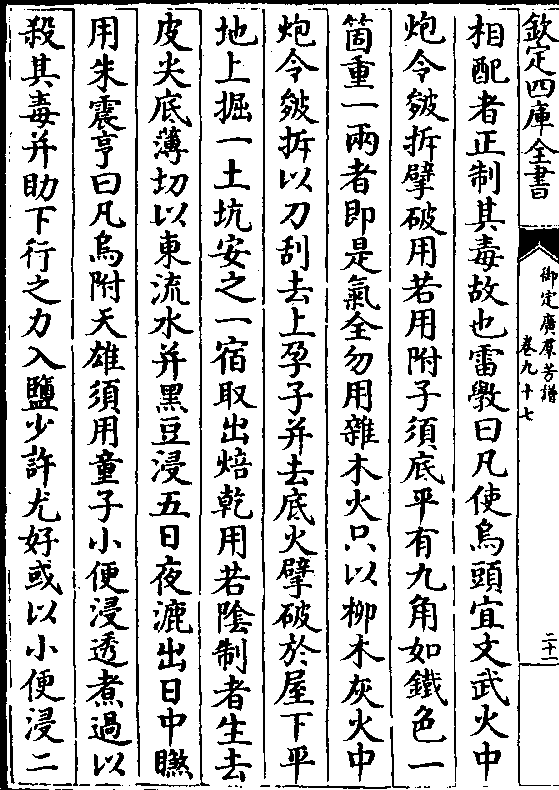 欽定四庫全書
御定廣羣芳譜
卷九十七
二十一
相配者正制其毒故也雷斆曰凡使烏頭宜文武火中
炮令皴拆擘破用若用附子須底平有九角如鐵色一
箇重一兩者即是氣全勿用雜木火只以柳木灰火中
炮令皴拆以刀刮去上孕子并去底火擘破於屋下平
地上掘一土坑安之一宿取出焙乾用若陰制者生去
皮尖底薄切以東流水并黑豆浸五日夜漉出日中㬠
用朱震亨曰凡烏附天雄須用童子小便浸透煮過以
殺其毒并助下行之力入鹽少許尤好或以小便浸二